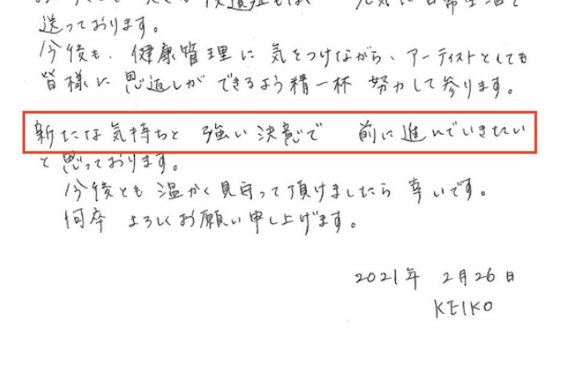 送っております。
今後も、健康管理に気をつけながら、アーティストとしても
皆様に恩返しができるよう精一杯 努力して参ります。
新たな気持ちと 強い決意で 前に進んでいきたい
と思っております。
今後とも温かく見守って頂けましたら幸いです。
何卒 よろしくお願い申し上げます。
2021年 2月26日
KEIKO